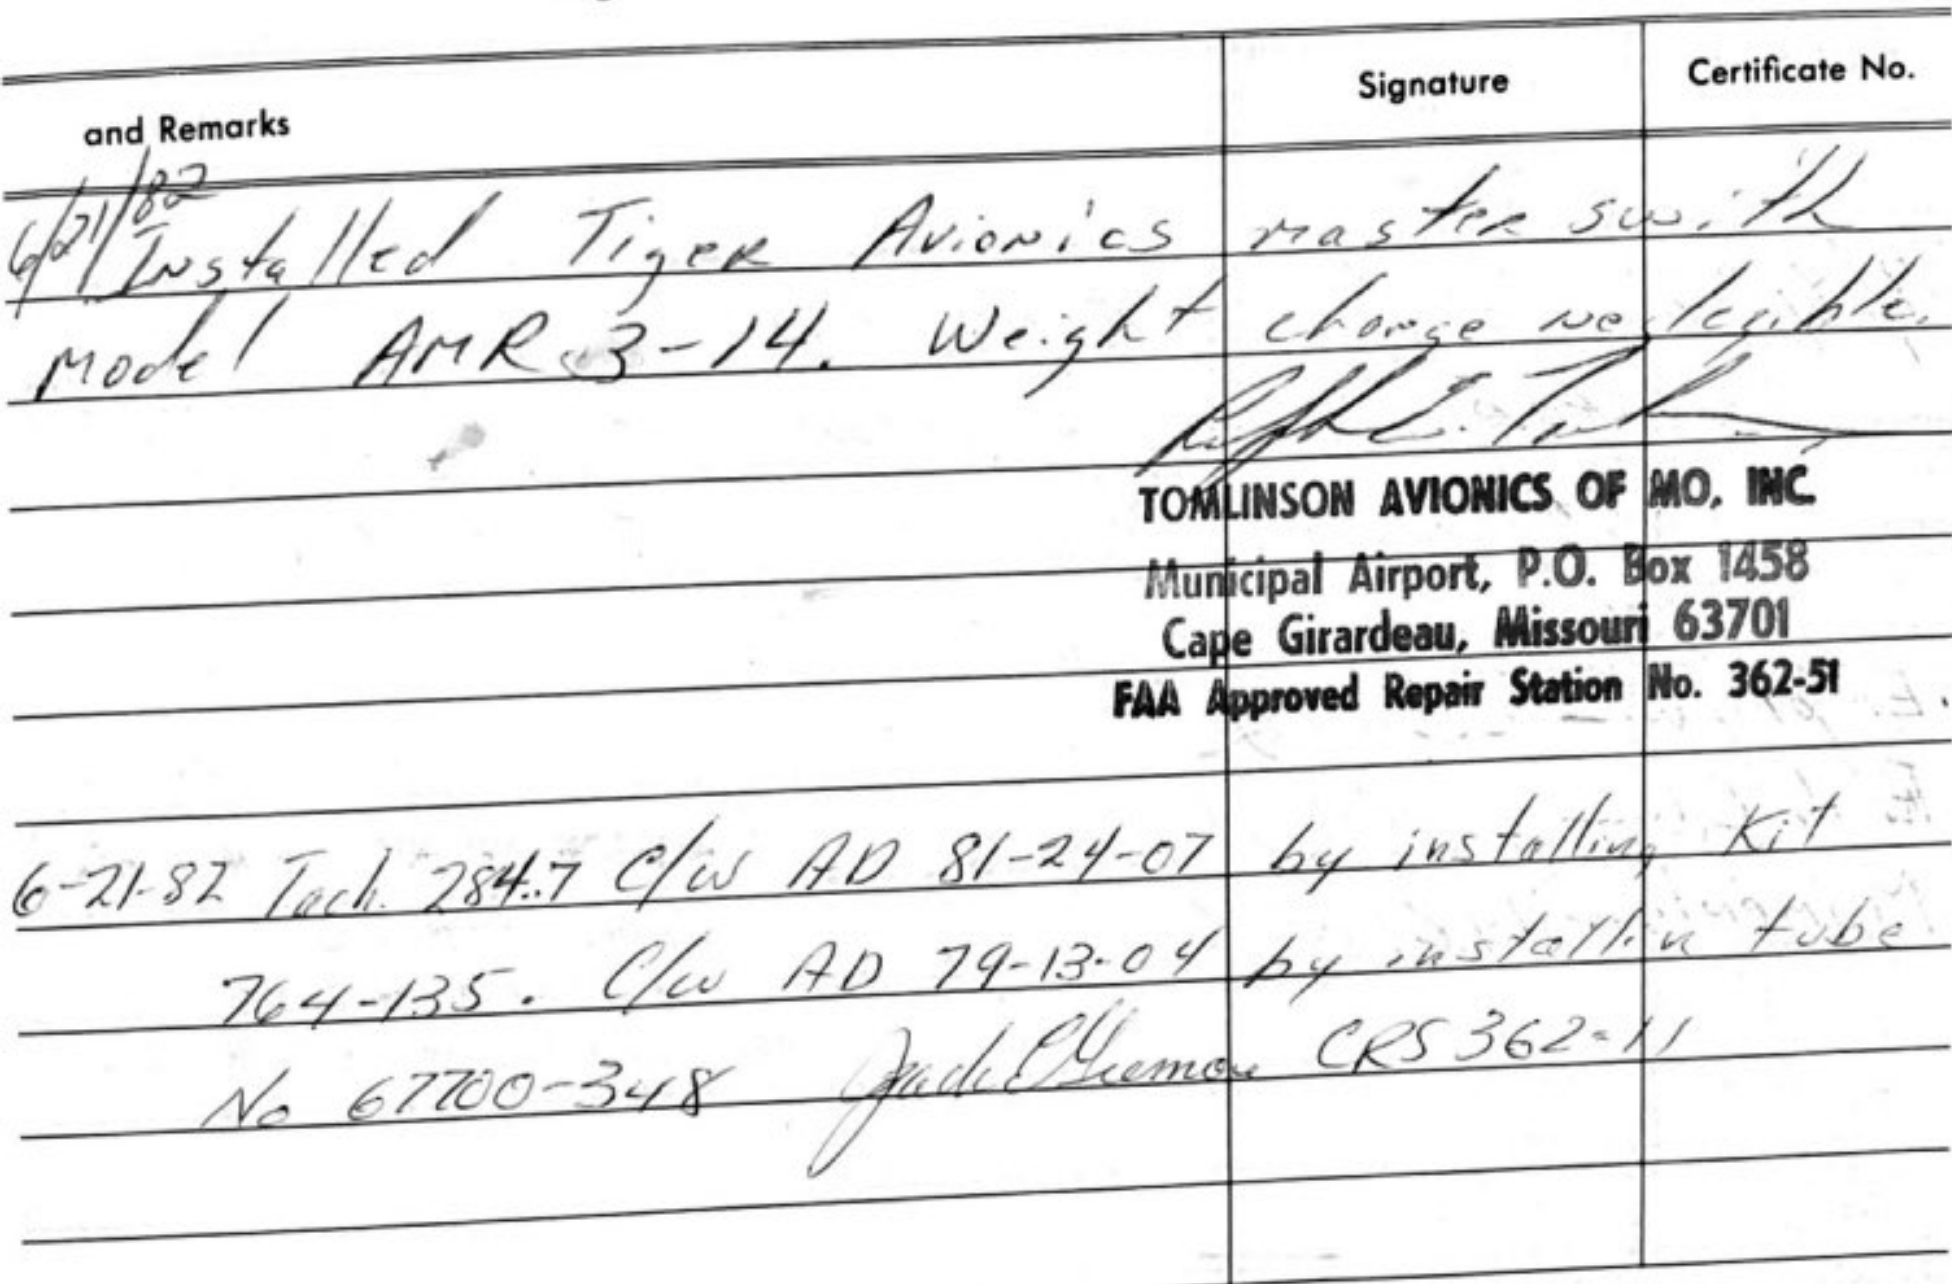 and Remarks Signature Certificate No.
6/21/82
Installed Tiger Avionics master swith
Model AMR 3-14. Weight change neglegible.
TOMLINSON AVIONICS OF MO, INC
Municipal Airport, P.O. Box 1458
Cape Girardeau, Missouri 63701
FAA Approved Repair Station No. 362-51
6-21-82 Tach. 284.7 C/W AD 81-24-07 by installing Kit
764-135. C/W AD 79-13-04 by installin tube
No 67700-348 Jack CRS 362-11